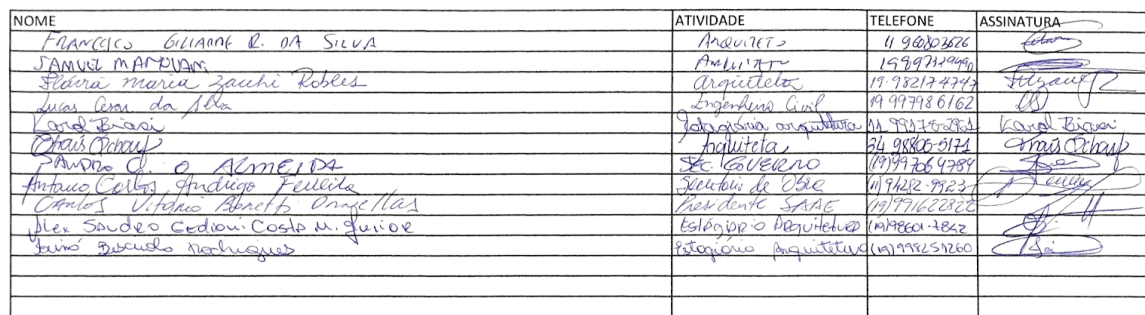 NOME ATIVIDADE TELEFONE ASSINATURA
FRANCISCO GILIANNE R. DA SILVA ARQUITETO 11 960803626
SAMUEL 
Flávia Maria Zauhi Robles Arquiteta 19-982174747
Lucas Cesar da Silva Engenheiro Civil 19 997986162
Karol Biasi Estagiária arquitetura Karol Biasi
Thaís Arquiteta 34 98806-5171 Thaís
SANDRO O. ALMEIDA SEC. GOVERNO (19)997064784
Antonio Carlos Andrigo Ferreira Secretário de Obra (11) 94282-9923
Carlos Vitório Ornellas Presidente SAAE (19)991622822
Alex Sandro Costa M. Junior ESTAGIÁRIO ARQUITETURA (19)98601-7842
Rodrigues Estagiário Arquitetura (19)998251260